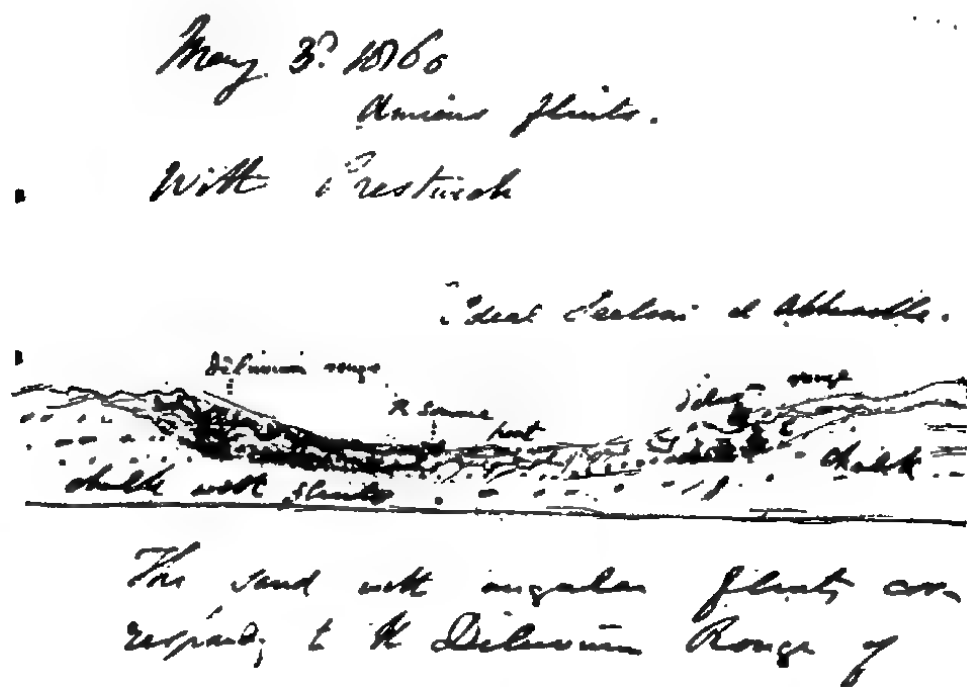 May 3? 1860
Amiens flints.
With Prestwich
Ideal Section at Abbeville.
Diluvium rouge
R Somme
peat
rouge
chalk
chalk with flints
This sand with angular flints cor-
respondg to the Diluvium Rouge of